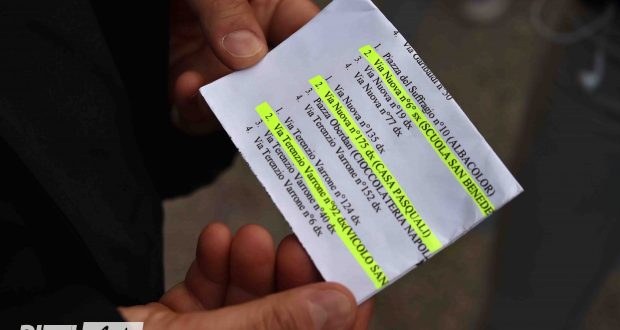 4. Via Garibaldi n°50
1. Piazza del Suffragio n°10 (ALBACOLOR)
2. Via Nuova n°6 sx (SCUOLA SAN BENEDE
3. Via Nuova n°19 dx
4. Via Nuova n°77 dx
1. Via Nuova n°135 dx
2. Via Nuova n°175 dx (CASA PASQUALI)
3. Piazza Oberdan (CIOCCOLATERIA NAPOL
4. Via Terenzio Varrone n°152 dx
1. Via Terenzio Varrone n°124 dx
2. Via Terenzio Varrone n°92 dx(VICOLO SAN
3. Via Terenzio Varrone n°40 dx
4. Via Terenzio Varrone n°6 dx